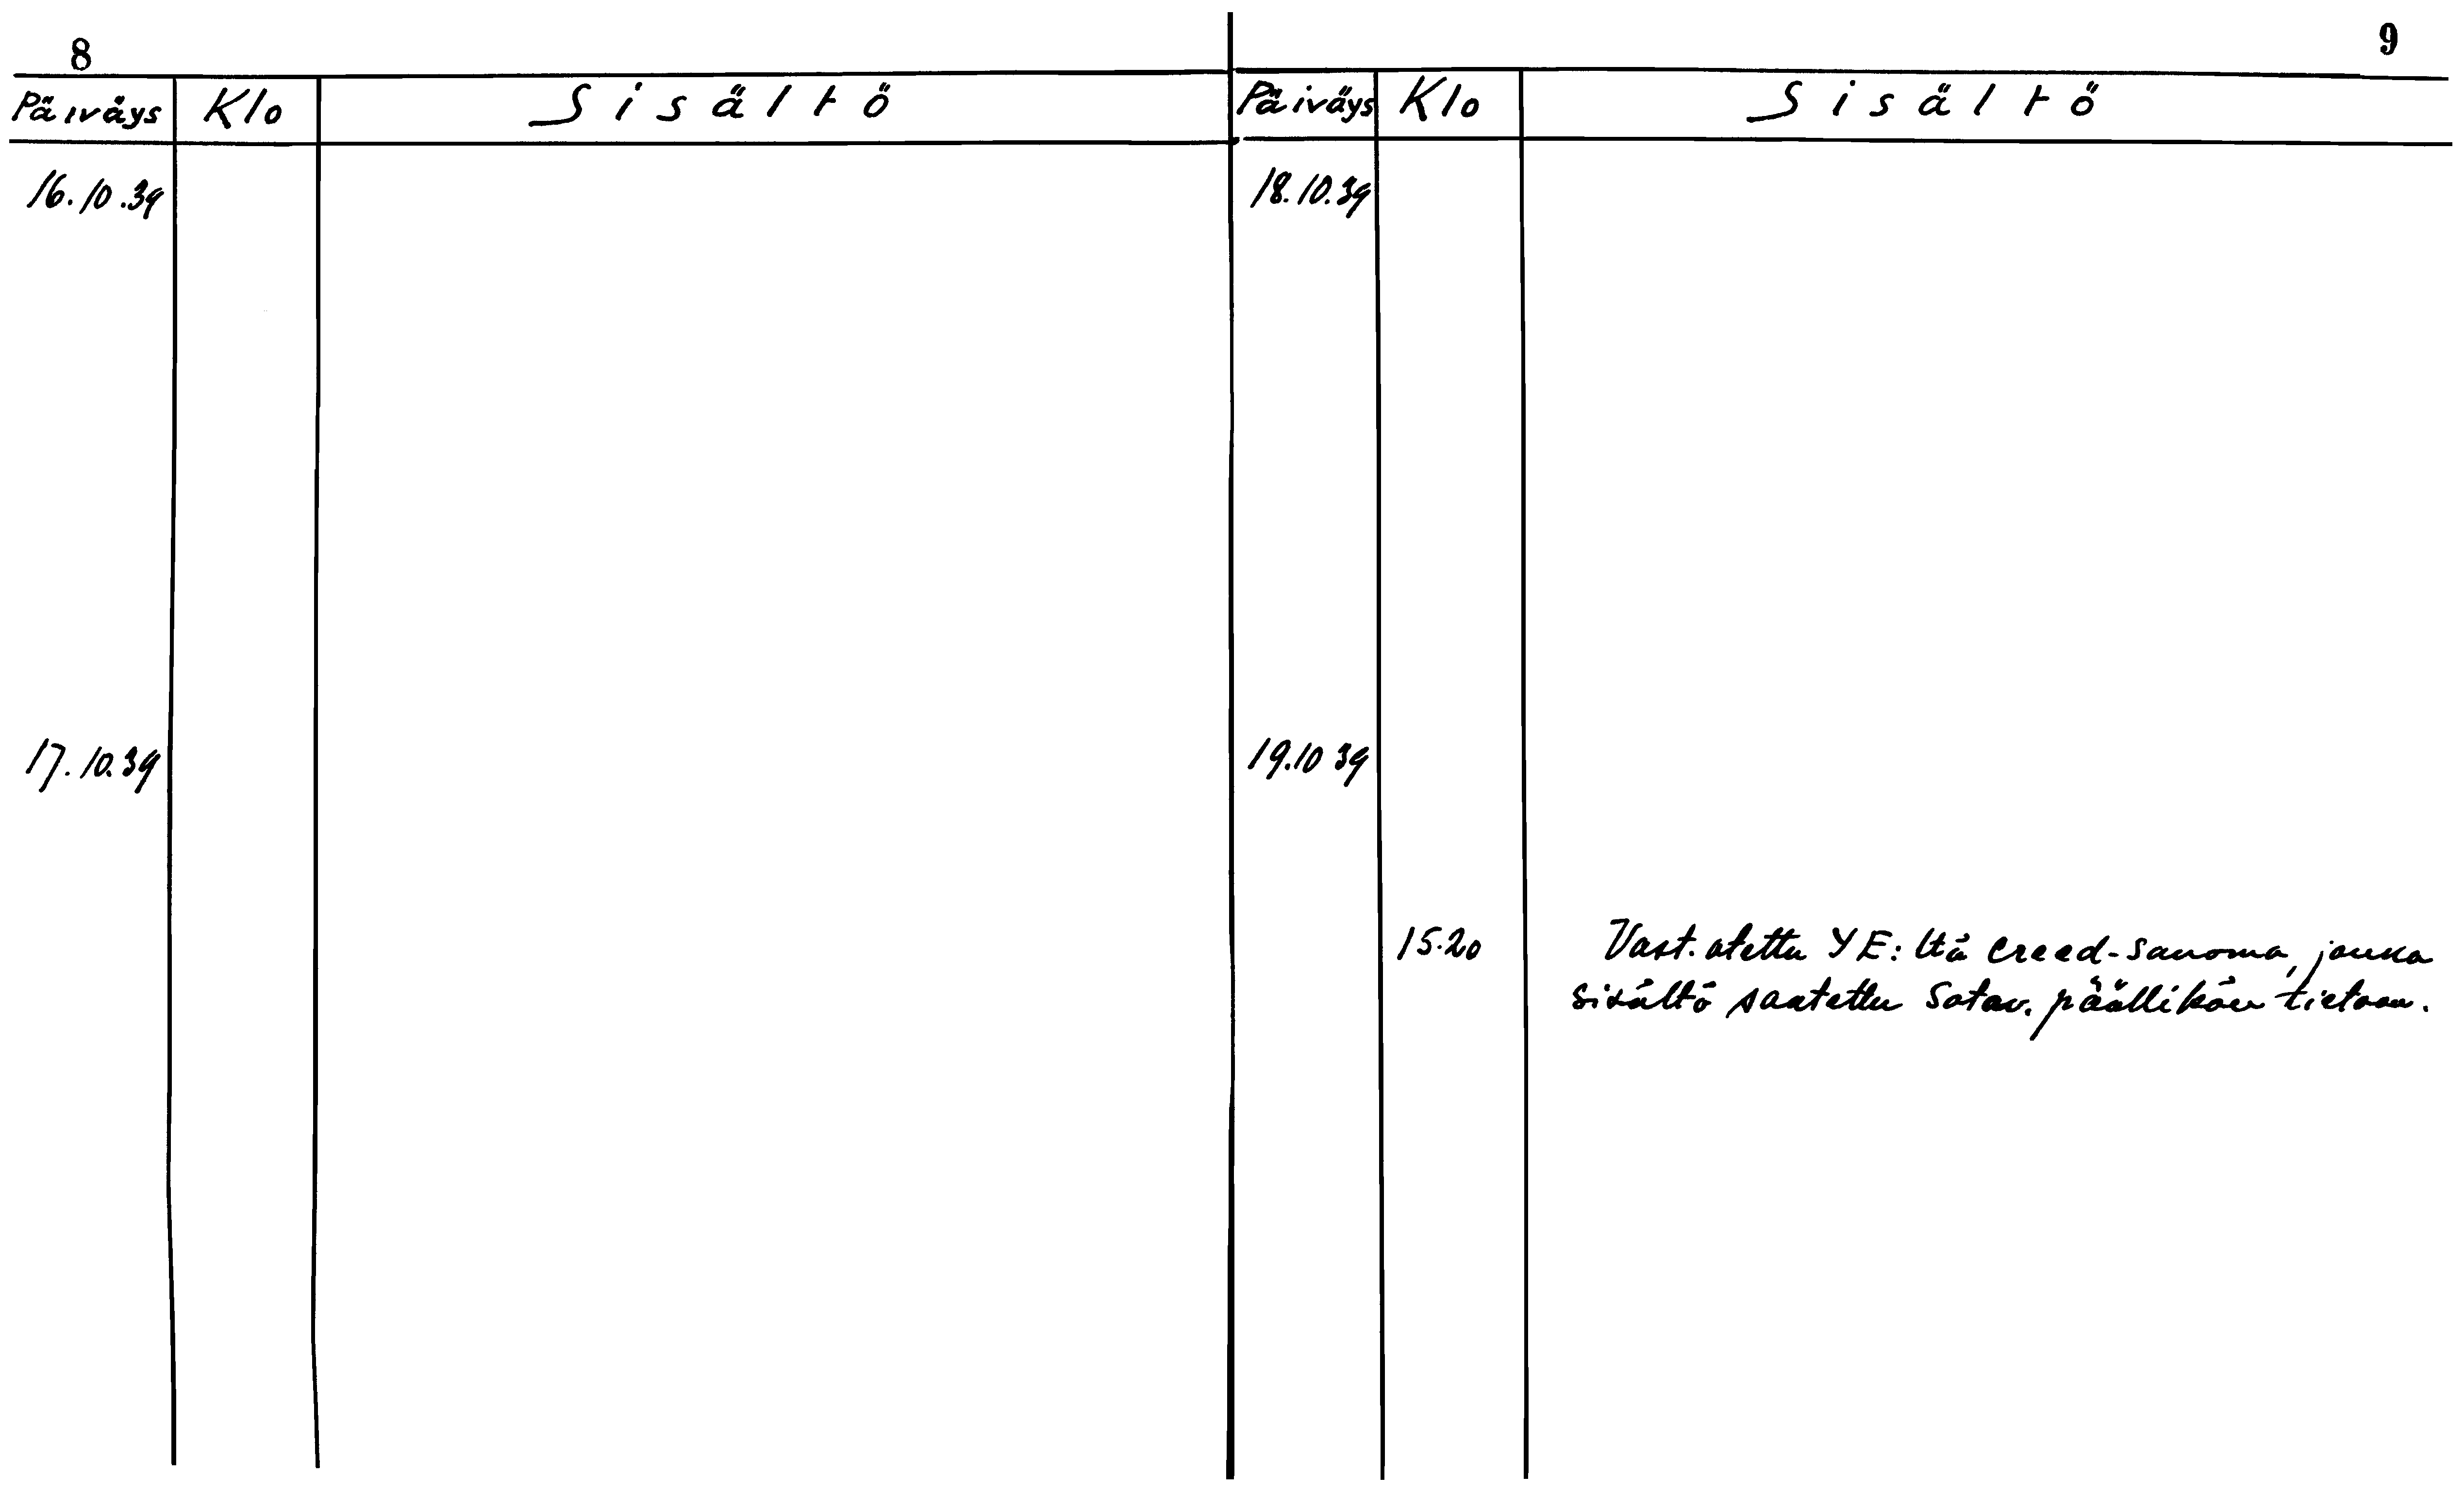 8
Päiväys Klo Sisältö
16.10.39
17.10.39
9
Päiväys Klo Sisältö
18.10.39
19.10 39
15.20 Vast. otettu YE: ltä Creed-sanoma, jonka
sisältö saatettu Sotav. päällikön tietoon.